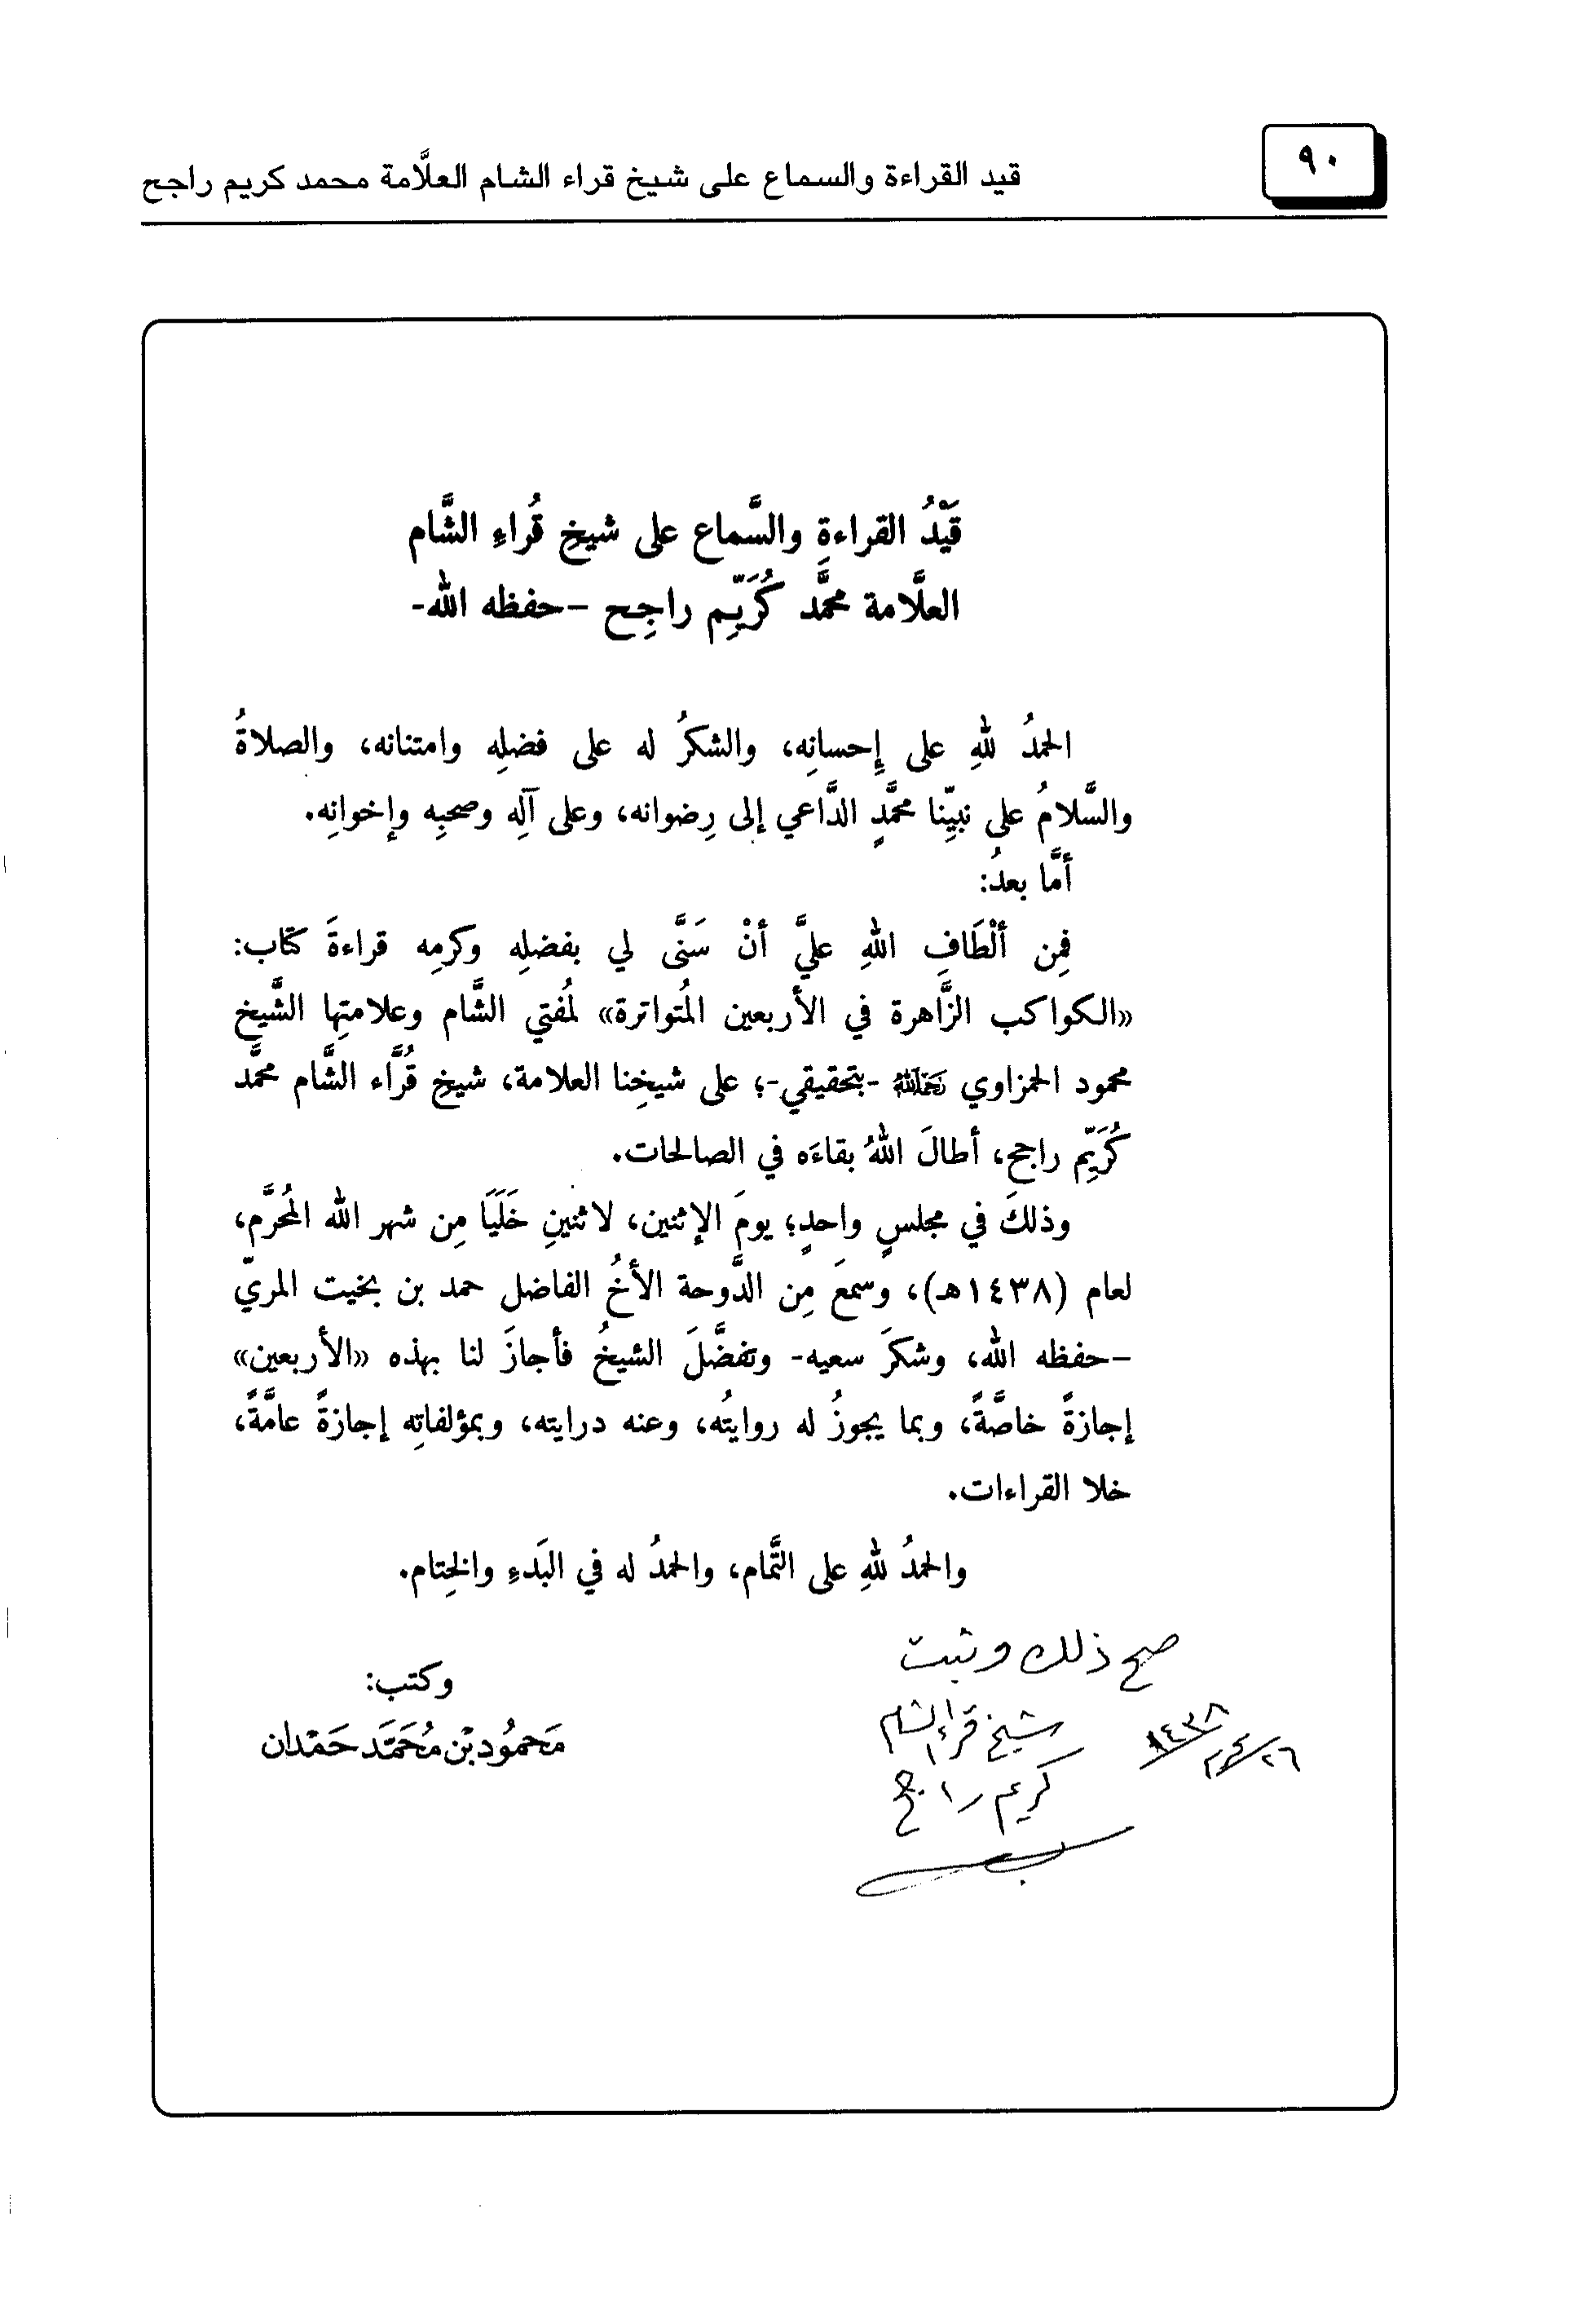 ٩٠
قيد القراءة والسماع على شيخ قراء الشام العلَّامة محمد كريم راجح
قَيْدُ القراءةِ والسَّماع على شيخِ قُراءِ الشَّام
العلَّامة محمَّد كُرَيِّم راجِح –حفظه الله-
الحمدُ للهِ على إحسانِه، والشكرُ له على فضلِه وامتنانه، والصلاةُ
والسَّلامُ على نبيِّنا محمَّدٍ الدَّاعي إلى رِضوانه، وعلى آلِه وصحبِه وإخوانِه.
أمَّا بعدُ:
فمِن ألْطَافِ اللهِ عليَّ أنْ سَنَّى لي بفضلِه وكرمِه قراءةَ كتاب:
«الكواكب الزَّاهرة في الأربعين المُتواترة» لمُفتي الشَّام وعلامتِها الشَّيخ
محمود الحمزاوي رَحِمَهُ اللهُ -بتحقيقي-؛ على شيخِنا العلامة، شيخِ قُرَّاء الشَّام محمَّد
كُرَيِّم راجح، أطالَ اللهُ بقاءَه في الصالحات.
وذلكَ في مجلسٍ واحدٍ؛ يومَ الإثنين، لاثنينِ خَلَيَا مِن شهر الله المُحرَّم،
لعام (١٤٣٨هـ)، وسمعَ مِن الدَّوحة الأخُ الفاضل حمد بن بخيت المريّ
–حفظه الله، وشكرَ سعيه- وتفضَّلَ الشيخُ فأجازَ لنا بهذه «الأربعين»
إجازةً خاصَّةً، وبما يجوزُ له روايتُه، وعنه درايته، وبمؤلفاتِه إجازةً عامَّةً،
خلا القراءات.
والحمدُ للهِ على التَّمام، والحمدُ له في البَدءِ والخِتام.
صح ذلك وثبت
شيخ قراء الشام
كريم راجح
١٤٣٨
وكتب:
مَحمُود بْن مُحَمَّد حَمْدان